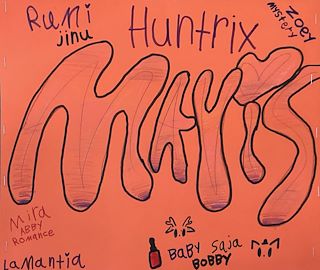 Rumi
jinu
Huntrix
Zoey
mystery
MAVIS
Mira
ABBY
Romance
LaMantia
BABY Saja
BOBBY